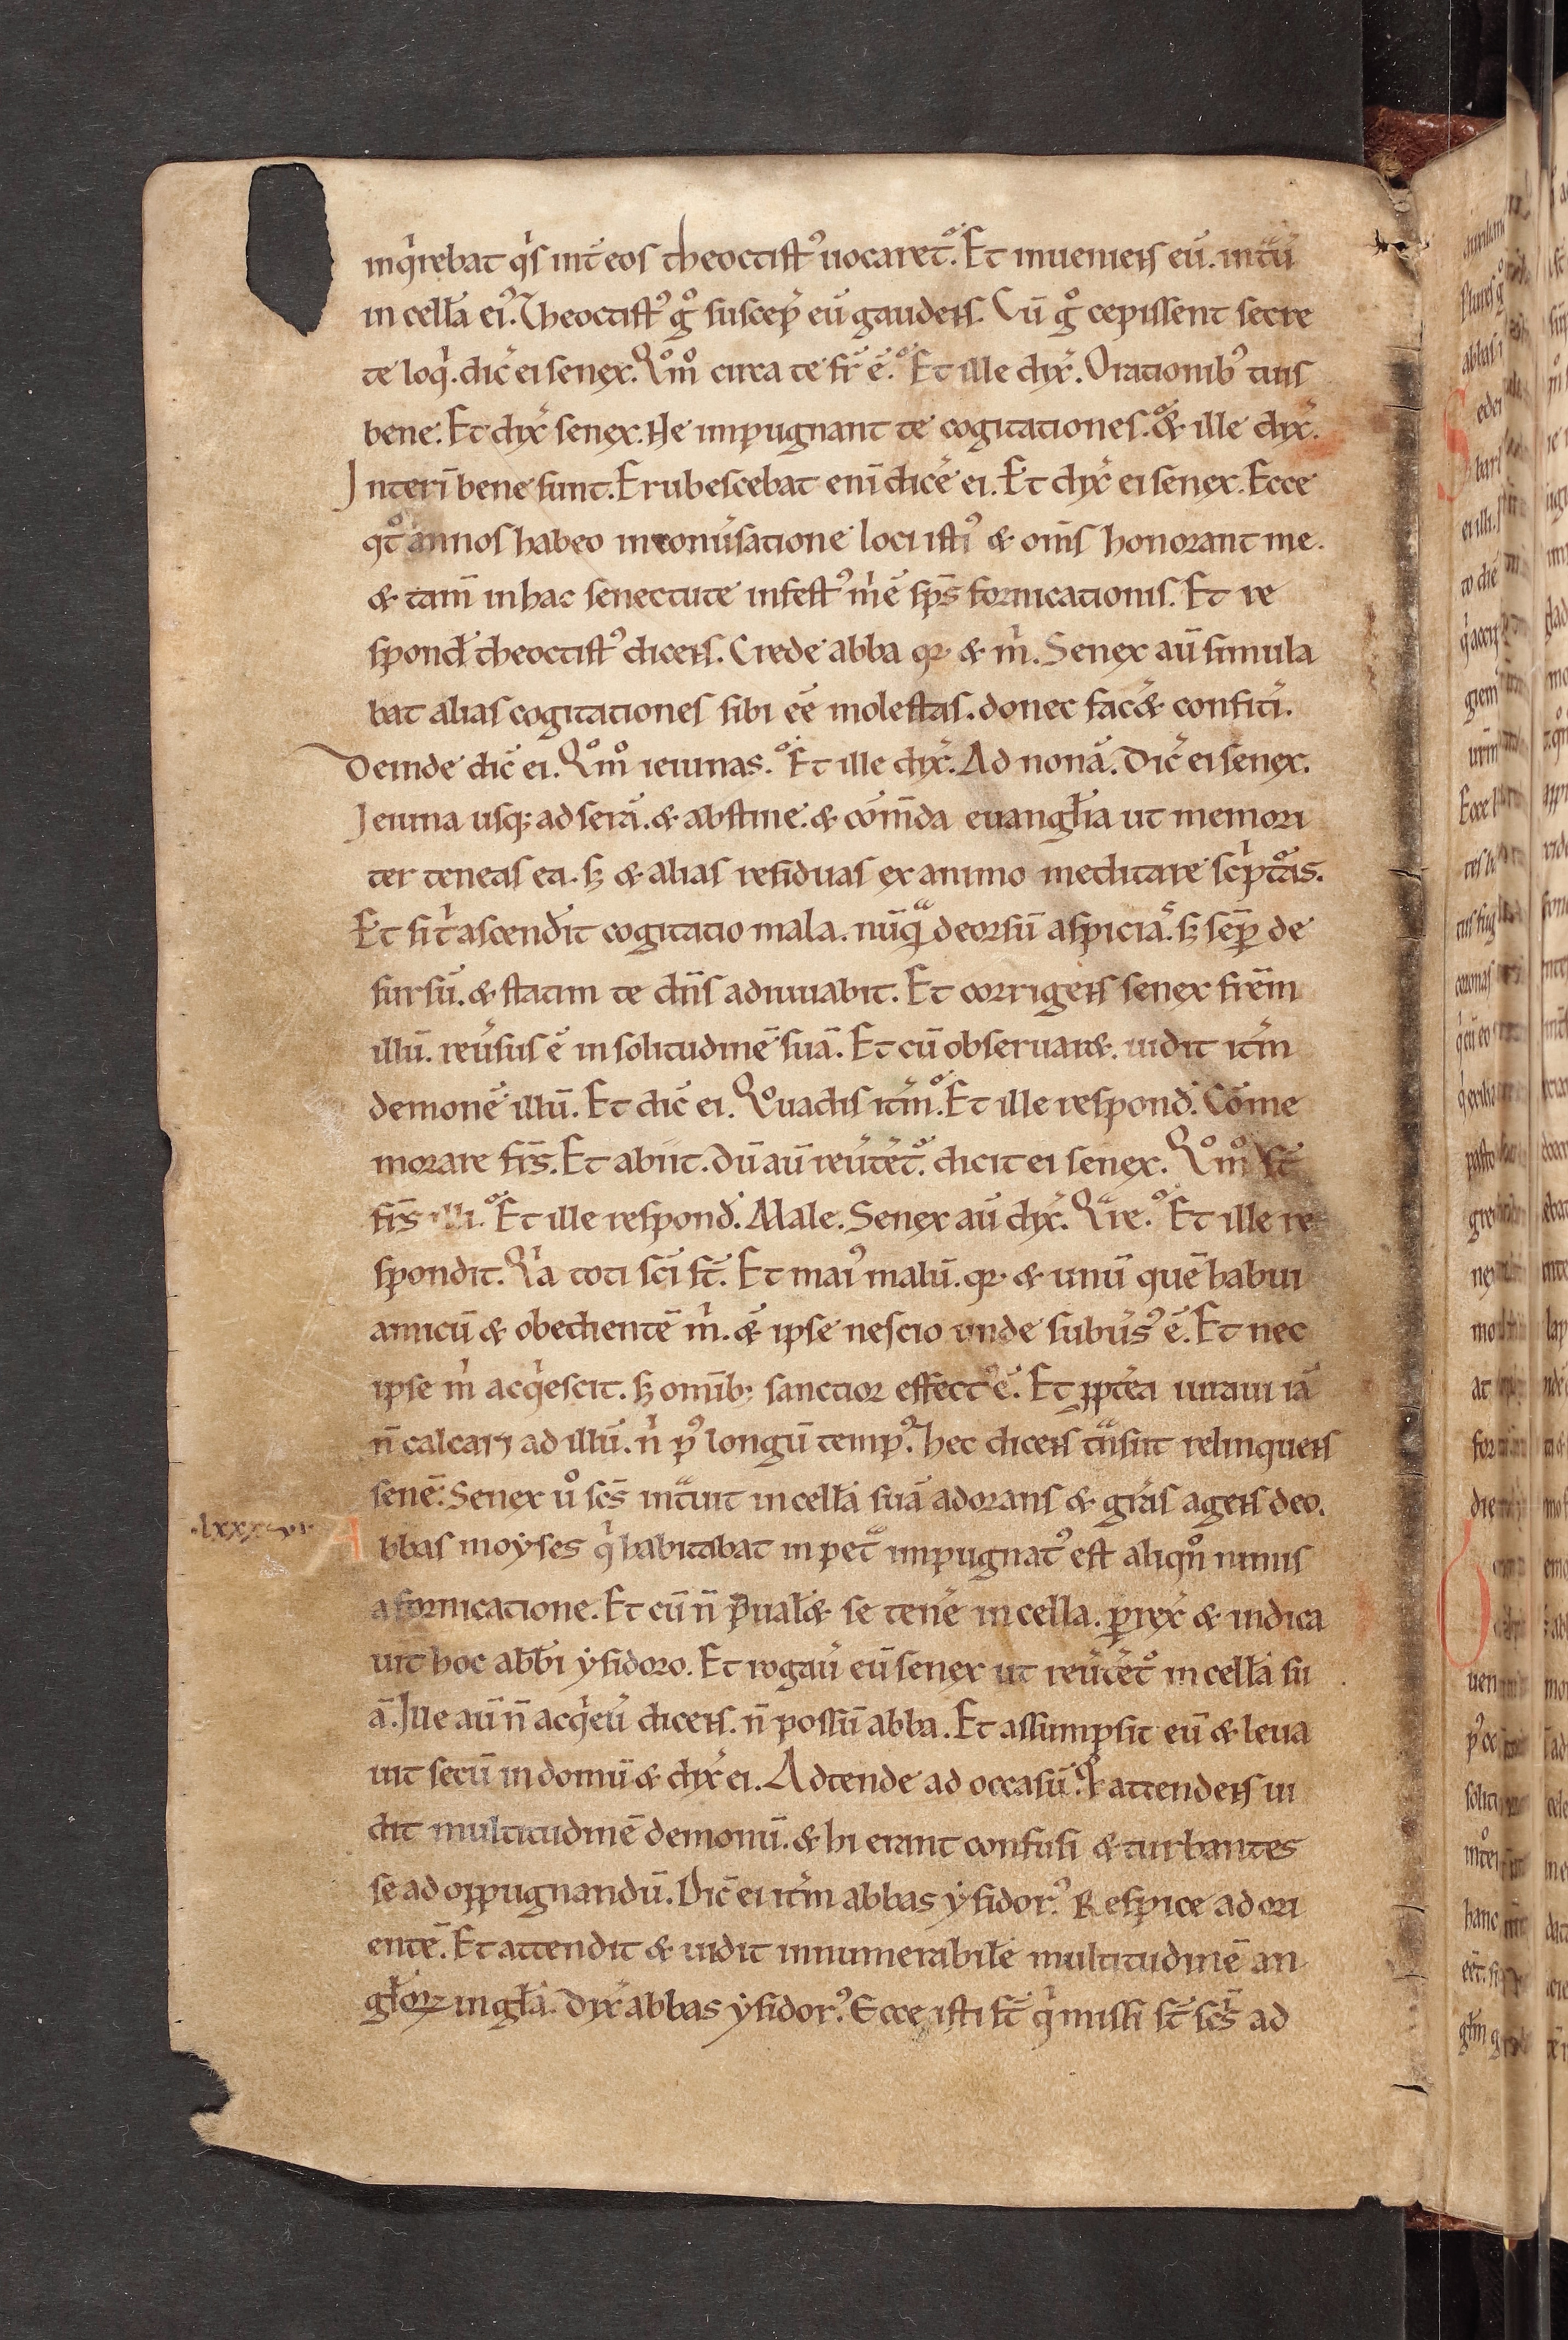 inq̍rebat q̍s int̄ eos theoctist᾽ uocaret᾽. Et inueniens eū. intͣuit
in cellā ei᾽. Theoctist᾽ gͦ suscep̄ eū gaudens. Cū gͦ cepissent secre
te loq̍. dic̄ ei senex. Qͦmͦ circa te fr̄ ē. Et ille dix̄. Orationib᾽ tuis
bene. Et dix̄ senex. Ne inpugnant te cogitationes. & ille dix̄.
Interī bene sunt. Erubescebat enī dicē ei. Et dix̄ ei senex. Ecce
qͦt annos habeo in conūsatione loci isti᾽ & om̄s honorant me.
& tam̄ in hac senectute infest᾽ m̍ ē sp̄s fornicationis. Et re
spond̄ theoctist᾽ dicens. Crede abba qꝛ & m̍. Senex aū simula
bat alias cogitationes sibi eē molestas. donec fac̄& confit̄i.
Deinde dic̄ ei. Qͦmͦ ieiunas. Et ille dix̄. Ad nonā. Dic̄ ei senex.
Ieiuna usq; ad serā. & abstine. & com̄da euangl̄ia ut memori
ter teneas ea. sꝫ & alias residuas ex animo meditare sc̍ptᷣas.
Et si t̍ ascend̄it cogitatio mala. nūqͣ deorsū aspicias. sꝫ semꝑ de
sursū. & statim te dn̄s adiuuabit. Et corrigens senex frēm
illū. reūsus ē in solitudinē suā. Et cū obseruar&. uidit itm̄
demonē illū. Et dic̄ ei. Quo uadis itm̄. Et ille respond̄. Cōme
morare frs̄. Et abiit. Dū aū reūtet᾽. dicit ei senex. Qͦmͦ st̄
frs̄ illi. Et ille respond̄. Male. Senex aū dix̄. Qͣre. Et ille re
spondit. Q̍a toti sc̄i st̄. Et mai᾽ malū. qꝛ & unū quē habui
amicū & obedientē m̍. & ipse nescio unde subūs᾽ ē. Et nec
ipse m̍ acq̍escit. sꝫ omīb; sanctior effect᾽ ē. Et ꝓpt̄ea iuraui iā
n̄ calcare ad illū. n̍ p᾽ longū temp᾽. hec dicens tͣnsiit relinquens
senē. Senex ūͦ scs̄ intͣuit in cellā suā adorans & grās agens deo.
.lxxxvi. Abbas moyses q̍ habitabat in petͣ impugnat᾽ est aliqn̄ nimis
a fornicatione. Et cū n̄ p̄ual̄& se tenē in cella. ꝑrex̄ & indica
uit hoc abb̄i ysidoro. Et rogaū eū senex ut reūtet᾽ in cellā su
ā. Ille aū n̄ acq̍eū dicens. n̄ possū abba. Et assumpsit eū & leua
uit secū in domū & dix̄ ei. Adtende ad occasū. & attendens ui
dit multitudinē demonū. & hi erant confusi & turbantes
se ad oppugnandū. Dic̄ ei itm̄ abbas ysidor᾽. Respice ad ori
entē. Et attendit & uidit innumerabilē multitudinē an
gl̄oꝝ in gl̄a. Dix̄ abbas ysidor᾽. Ecce isti st̄ q̍ missi st̄ scs̄ ad